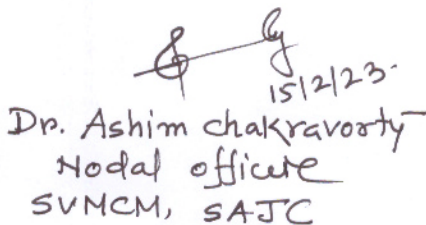 15/2/23.
Dr. Ashim Chakravorty
Nodal officere
SVMCM, SAJC